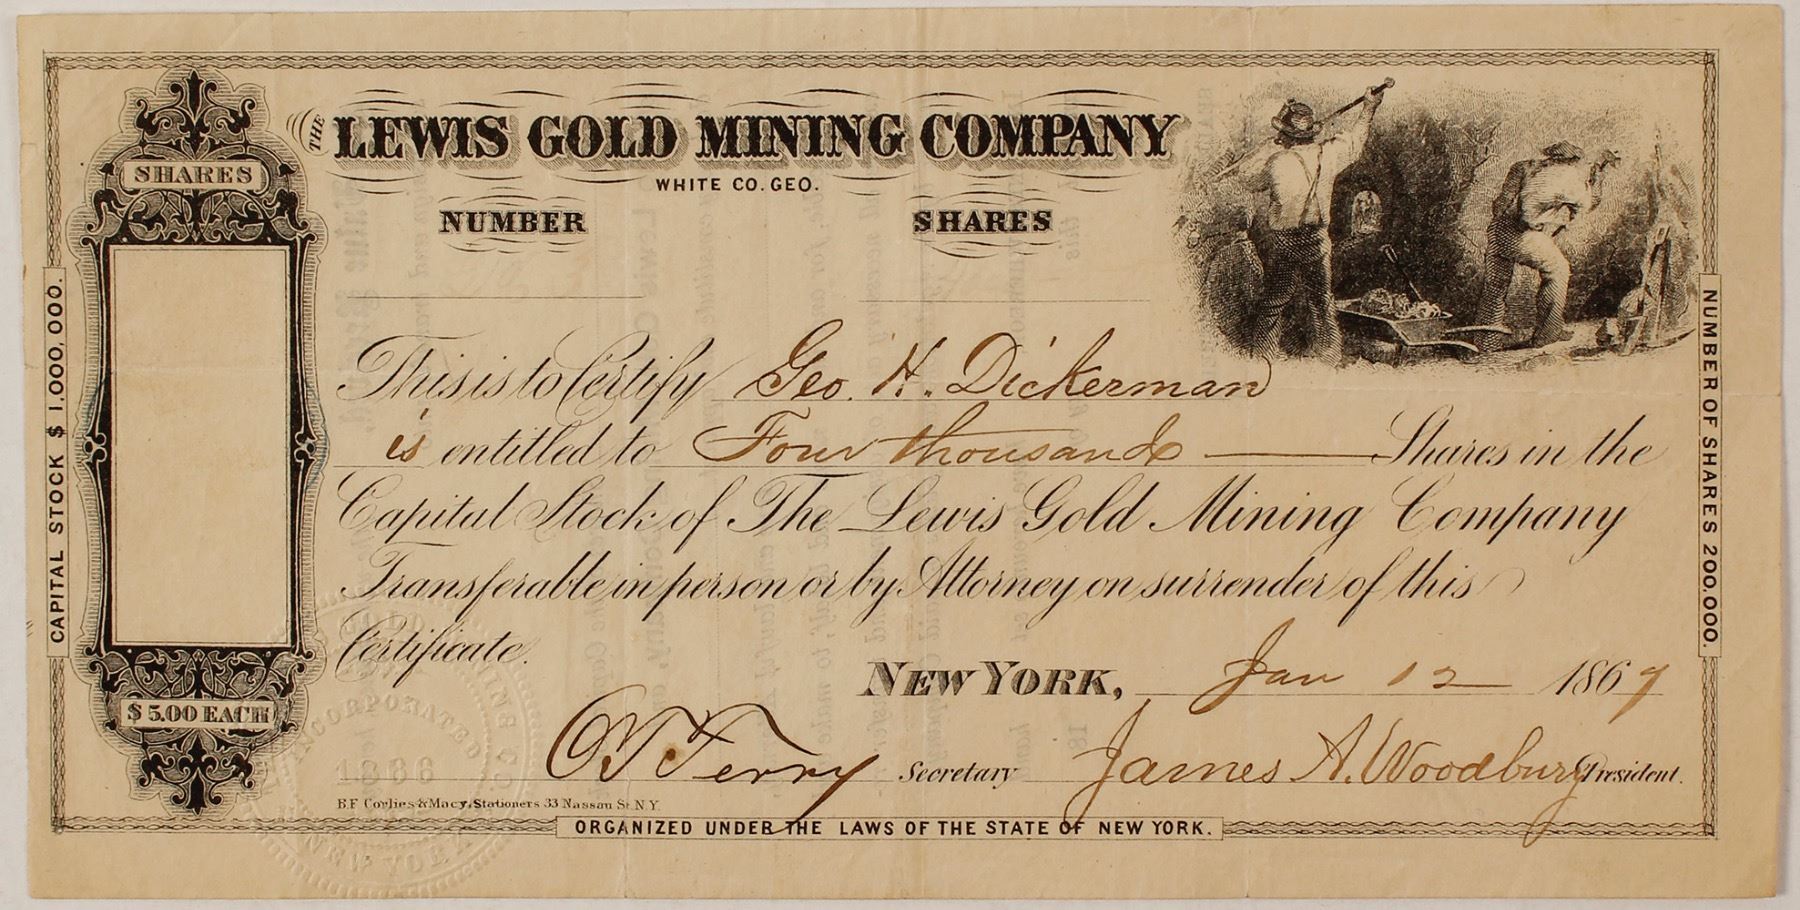 THE LEWIS GOLD MINING COMPANY
WHITE CO. GEO.
SHARES
NUMBER SHARES
CAPITAL STOCK $1,000,000.
NUMBER OF SHARES 200,000.
This is to Certify Geo. H. Dickerman
is entitled to Four thousand Shares in the
Capital Stock of The Lewis Gold Mining Company
Transferable in person or by Attorney on surrender of this
Certificate.
NEW YORK, Jan 12 1867
$5.00 EACH
INCORPORATED
1866
NEW YORK
Terry Secretary James A. Woodbury President.
B.F Corlies & Macy, Stationers 33 Nassau St. N.Y.
ORGANIZED UNDER THE LAWS OF THE STATE OF NEW YORK.